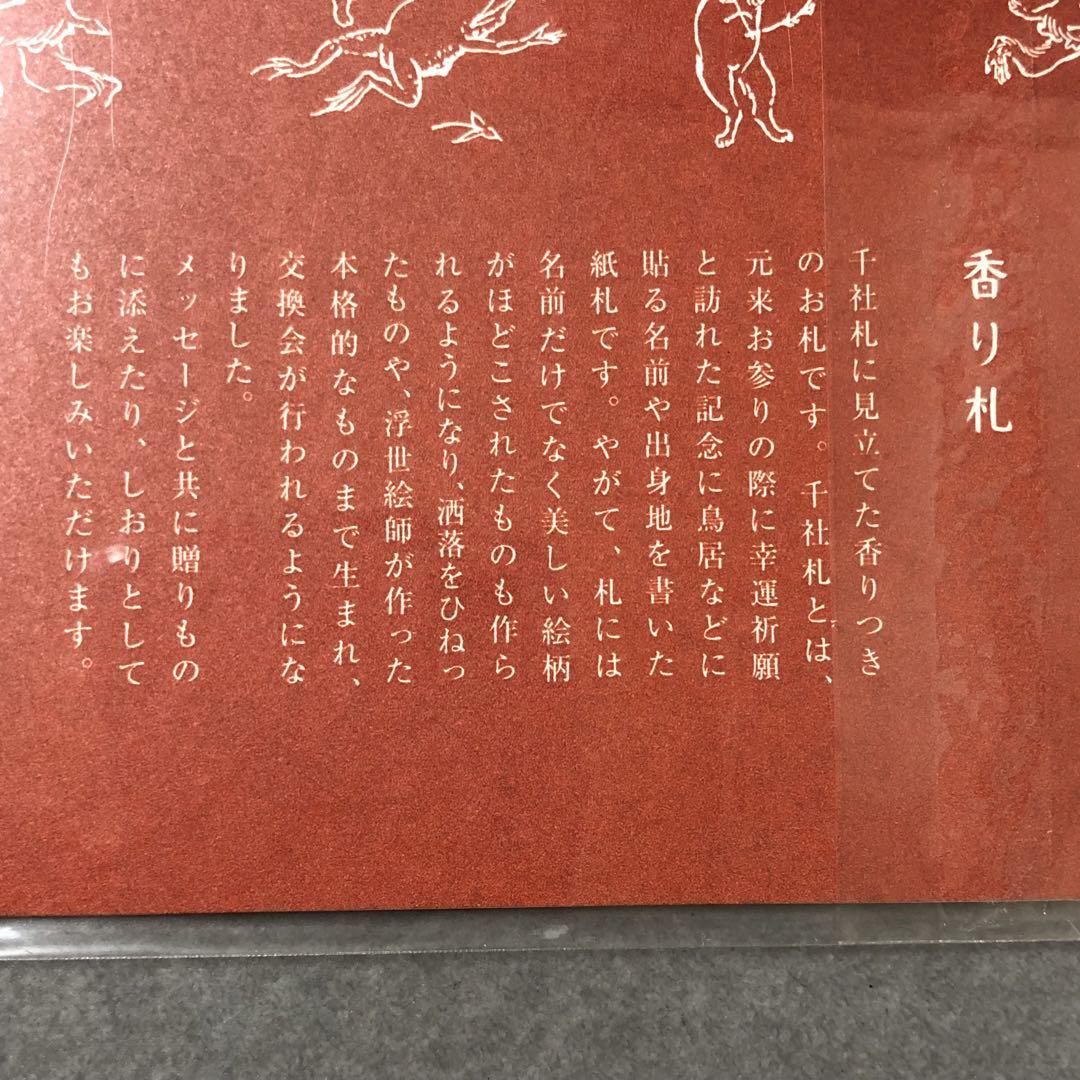 香り札
千社札に見立てた香りつき
のお札です。千社札とは、
元来お参りの際に幸運祈願
と訪れた記念に鳥居などに
貼る名前や出身地を書いた
紙札です。やがて、札には
名前だけでなく美しい絵柄
がほどこされたものも作ら
れるようになり、洒落をひねっ
たものや、浮世絵師が作った
本格的なものまで生まれ、
交換会が行われるようにな
りました。
メッセージと共に贈りもの
に添えたり、しおりとして
もお楽しみいただけます。